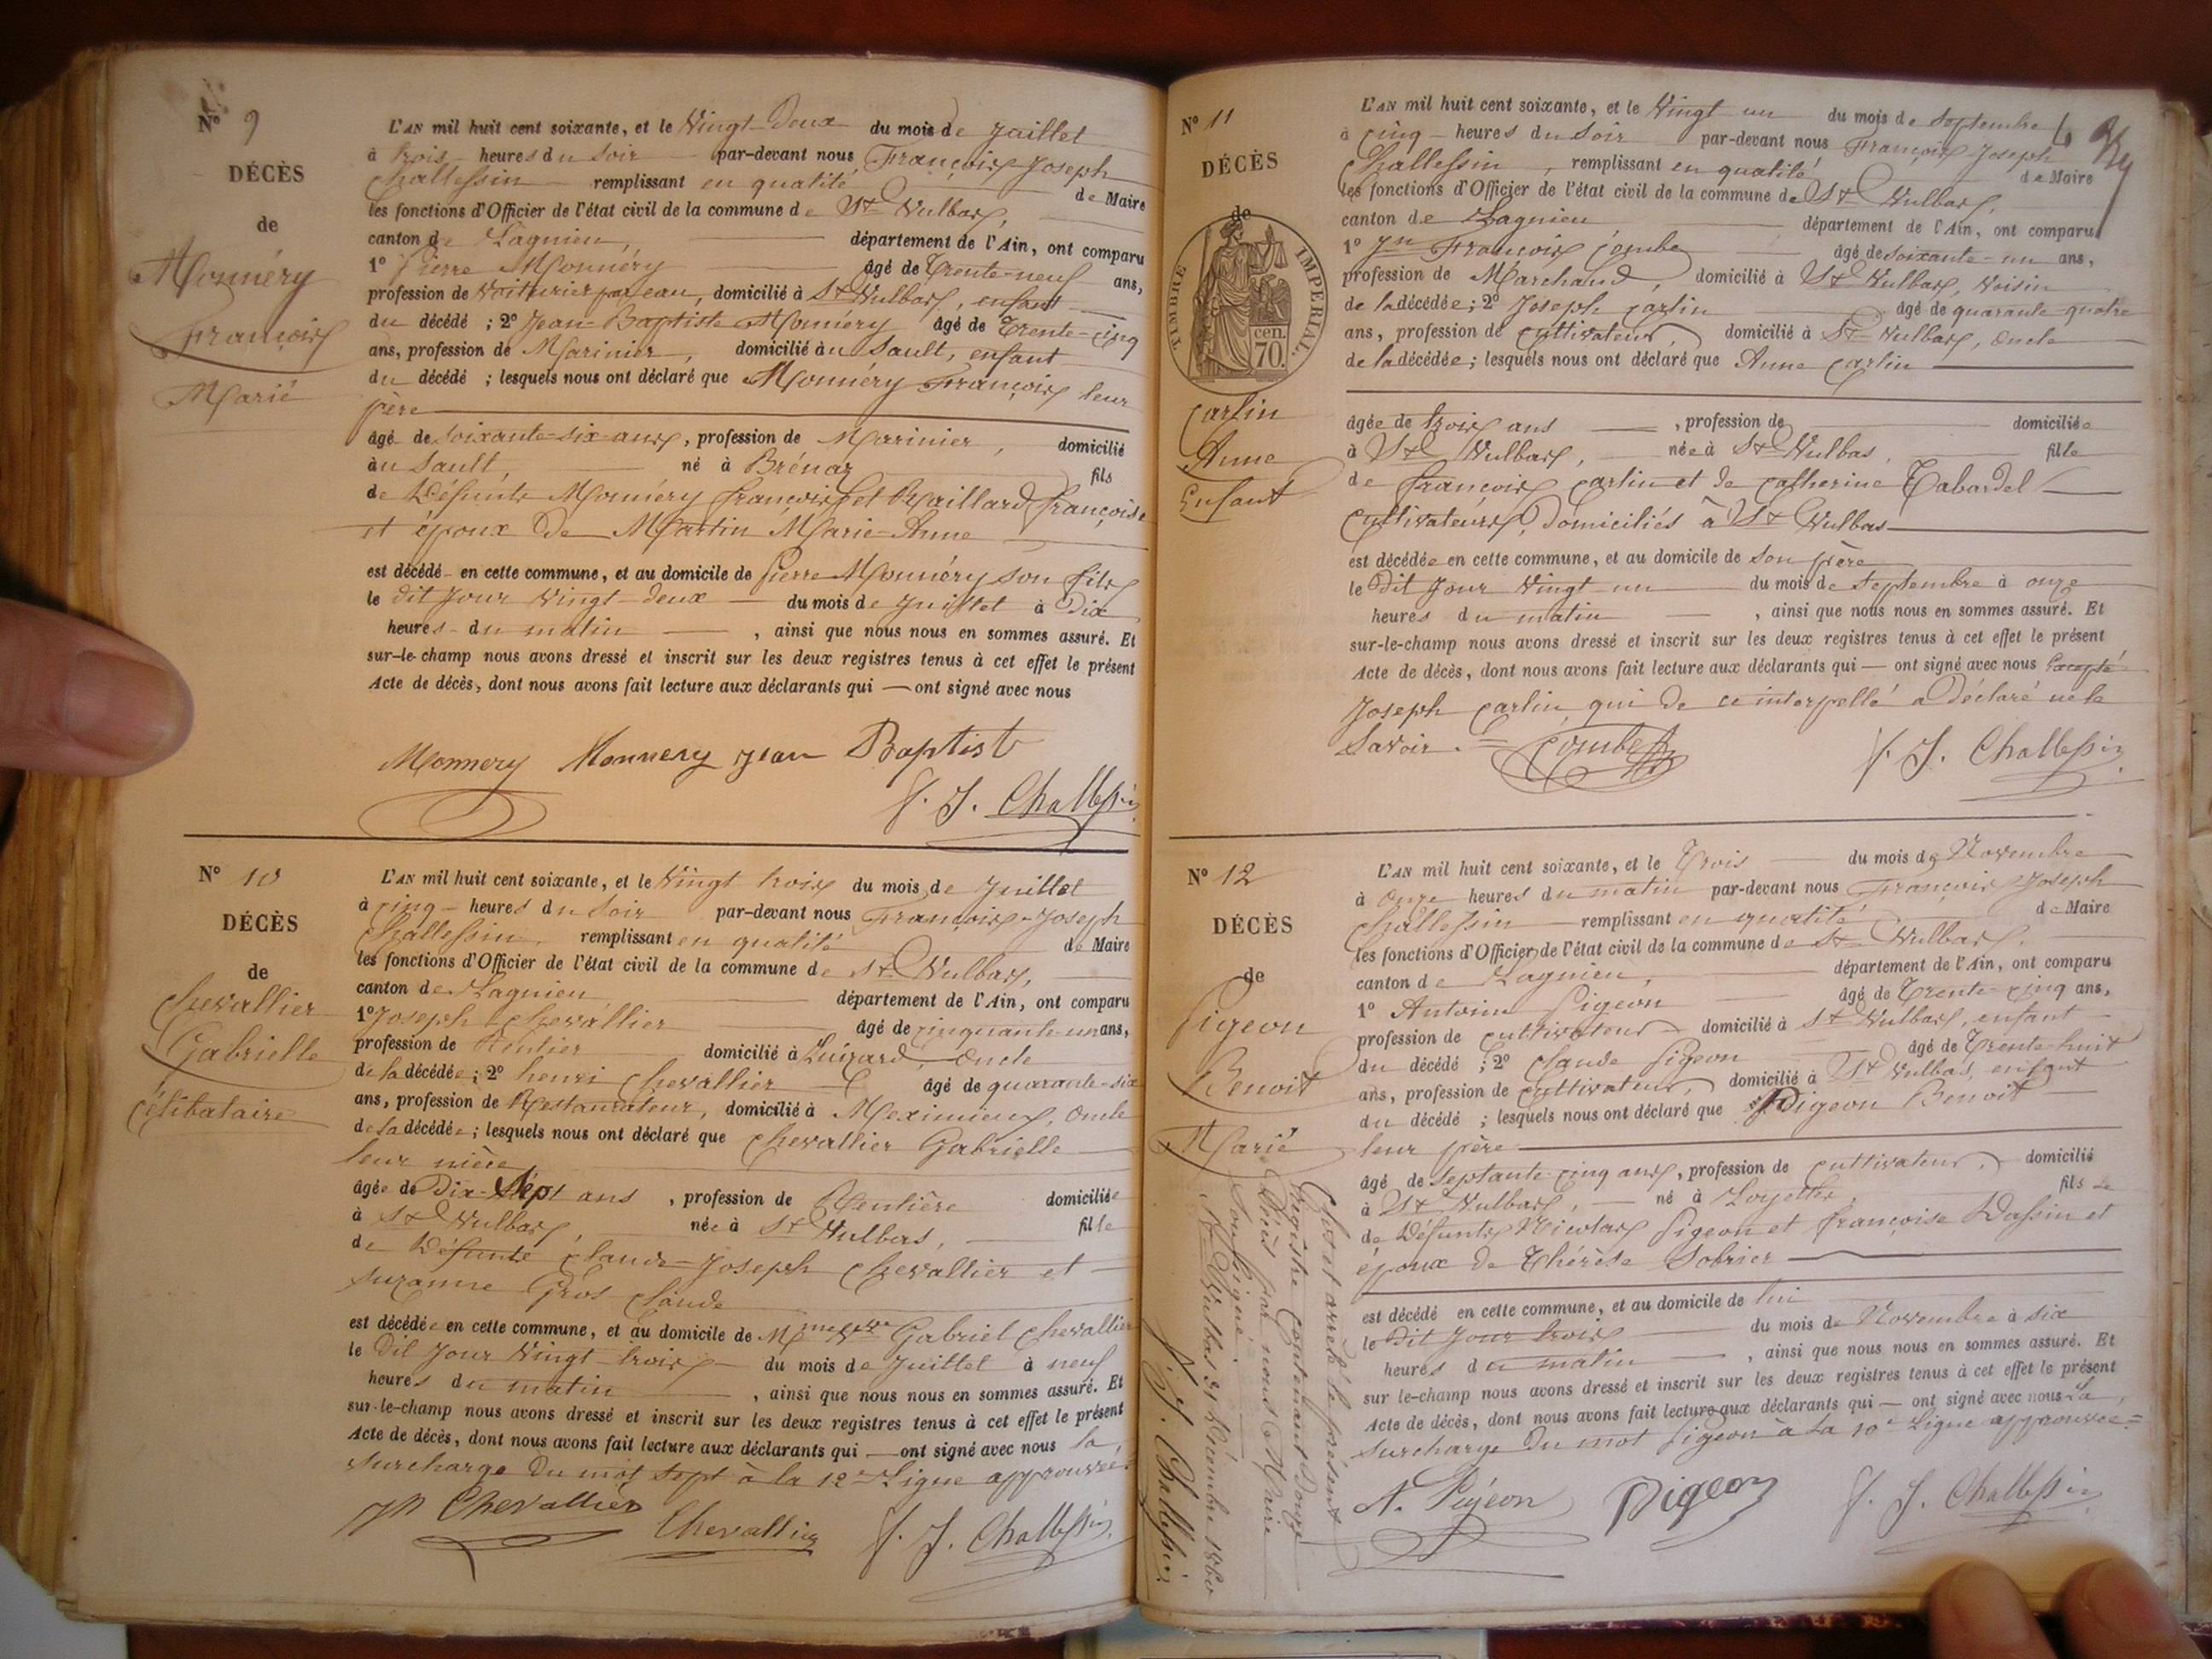 N° 9
DÉCÈS
de
Monnéry
François
Marié
L'AN mil huit cent soixante, et le Vingt-Deux du mois de Juillet
à trois heures du Soir par-devant nous François Joseph
Challessin remplissant en qualité de Maire
les fonctions d'Officier de l'état civil de la commune de St Vulbas,
canton de Lagnieu, département de l'Ain, ont comparu
1° Pierre Monnéry âgé de Trente-neuf ans,
profession de Voiturier par eau, domicilié à St Vulbas, enfant
du décédé ; 2° Jean-Baptiste Monnéry âgé de Trente-cinq
ans, profession de Marinier, domicilié au Sault, enfant
du décédé ; lesquels nous ont déclaré que Monnéry François leur
père
âgé de soixante-six ans, profession de Marinier, domicilié
au Sault, né à Brénaz fils
de Défunts Monnéry François et Maillard Françoise
et époux de Martin Marie-Anne
est décédé en cette commune, et au domicile de Pierre Monnéry son fils
le dit Jour Vingt-deux du mois de Juillet à Dix
heures du matin , ainsi que nous nous en sommes assuré. Et
sur-le-champ nous avons dressé et inscrit sur les deux registres tenus à cet effet le présent
Acte de décès, dont nous avons fait lecture aux déclarants qui — ont signé avec nous
Monnery Monnery Jean Baptist
f. J. Challessin
N° 10
DÉCÈS
de
Chevallier
Gabrielle
Célibataire
L'AN mil huit cent soixante, et le Vingt trois du mois de Juillet
à cinq heures du Soir par-devant nous François-Joseph
Challessin, remplissant en qualité de Maire
les fonctions d'Officier de l'état civil de la commune de St Vulbas,
canton de Lagnieu département de l'Ain, ont comparu
1° Joseph Chevallier âgé de cinquante-un ans,
profession de Rentier domicilié à Luizard, Oncle
de la décédée ; 2° henri Chevallier âgé de quarante-six
ans, profession de Restaurateur, domicilié à Meximieux, Oncle
de la décédée ; lesquels nous ont déclaré que Chevallier Gabrielle
leur nièce
âgée de Dix-Sept ans , profession de Rentière domiciliée
à St Vulbas, née à St Vulbas, fille
de Défunts Claude-Joseph Chevallier et
Suzanne Gros Claude
est décédée en cette commune, et au domicile de Mme Vve Gabriel Chevallier
le dit Jour Vingt-trois du mois de Juillet à neuf
heures du matin , ainsi que nous nous en sommes assuré. Et
sur-le-champ nous avons dressé et inscrit sur les deux registres tenus à cet effet le présent
Acte de décès, dont nous avons fait lecture aux déclarants qui — ont signé avec nous la
Surcharge du mot Sept à la 12e Ligne approuvée
Jh Chevallier Chevallier f. J. Challessin
N° 11
DÉCÈS
de
TIMBRE IMPÉRIAL.
cen.
70.
Carlin
Anne
Enfant
L'AN mil huit cent soixante, et le Vingt un du mois de Septembre
à cinq heures du Soir par-devant nous François-Joseph
Challessin, remplissant en qualité de Maire
les fonctions d'Officier de l'état civil de la commune de St Vulbas,
canton de Lagnieu département de l'Ain, ont comparu
1° Jn François Combe âgé de soixante-un ans,
profession de Marchand, domicilié à St Vulbas, Voisin
de la décédée ; 2° Joseph Carlin âgé de quarante quatre
ans, profession de Cultivateur, domicilié à St Vulbas, Oncle
de la décédée ; lesquels nous ont déclaré que Anne Carlin
âgée de trois ans , profession de domiciliée
à St Vulbas, née à St Vulbas, fille
de François Carlin et de Catherine Tabardel
Cultivateurs, Domiciliés à St Vulbas
est décédée en cette commune, et au domicile de son père
le Dit Jour Vingt un du mois de Septembre à onze
heures du matin , ainsi que nous nous en sommes assuré. Et
sur-le-champ nous avons dressé et inscrit sur les deux registres tenus à cet effet le présent
Acte de décès, dont nous avons fait lecture aux déclarants qui — ont signé avec nous Excepté
Joseph Carlin qui de ce interpellé a Déclaré ne le
Savoir.
Combe f. J. Challessin
N° 12
DÉCÈS
de
Pigeon
Benoit
Marié
L'AN mil huit cent soixante, et le Trois du mois de Novembre
à Onze heures du matin par-devant nous François Joseph
Challessin remplissant en qualité de Maire
les fonctions d'Officier de l'état civil de la commune de St Vulbas,
canton de Lagnieu, département de l'Ain, ont comparu
1° Antoine Pigeon âgé de Trente-cinq ans,
profession de Cultivateur domicilié à St Vulbas, enfant
du décédé ; 2° Claude Pigeon âgé de Trente-huit
ans, profession de Cultivateur, domicilié à St Vulbas, enfant
du décédé ; lesquels nous ont déclaré que Pigeon Benoit
leur père
âgé de Septante-cinq ans, profession de Cultivateur, domicilié
à St Vulbas, né à Loyettes, fils de
de Défunts Nicolas Pigeon et Françoise Dassin et
époux de Thérèse Sobrier
est décédé en cette commune, et au domicile de lui
le Dit Jour trois du mois de Novembre à six
heures du matin , ainsi que nous nous en sommes assuré. Et
sur le-champ nous avons dressé et inscrit sur les deux registres tenus à cet effet le présent
Acte de décès, dont nous avons fait lecture aux déclarants qui — ont signé avec nous La
Surcharge du mot Pigeon à la 10e Ligne approuvée
A. Pigeon Pigeon f. J. Challessin
Clos et arrêté le présent
Registre contenant Douze
Décès par nous Maire
Soussigné.
St Vulbas 31 Décembre 1860
f. J. Challessin